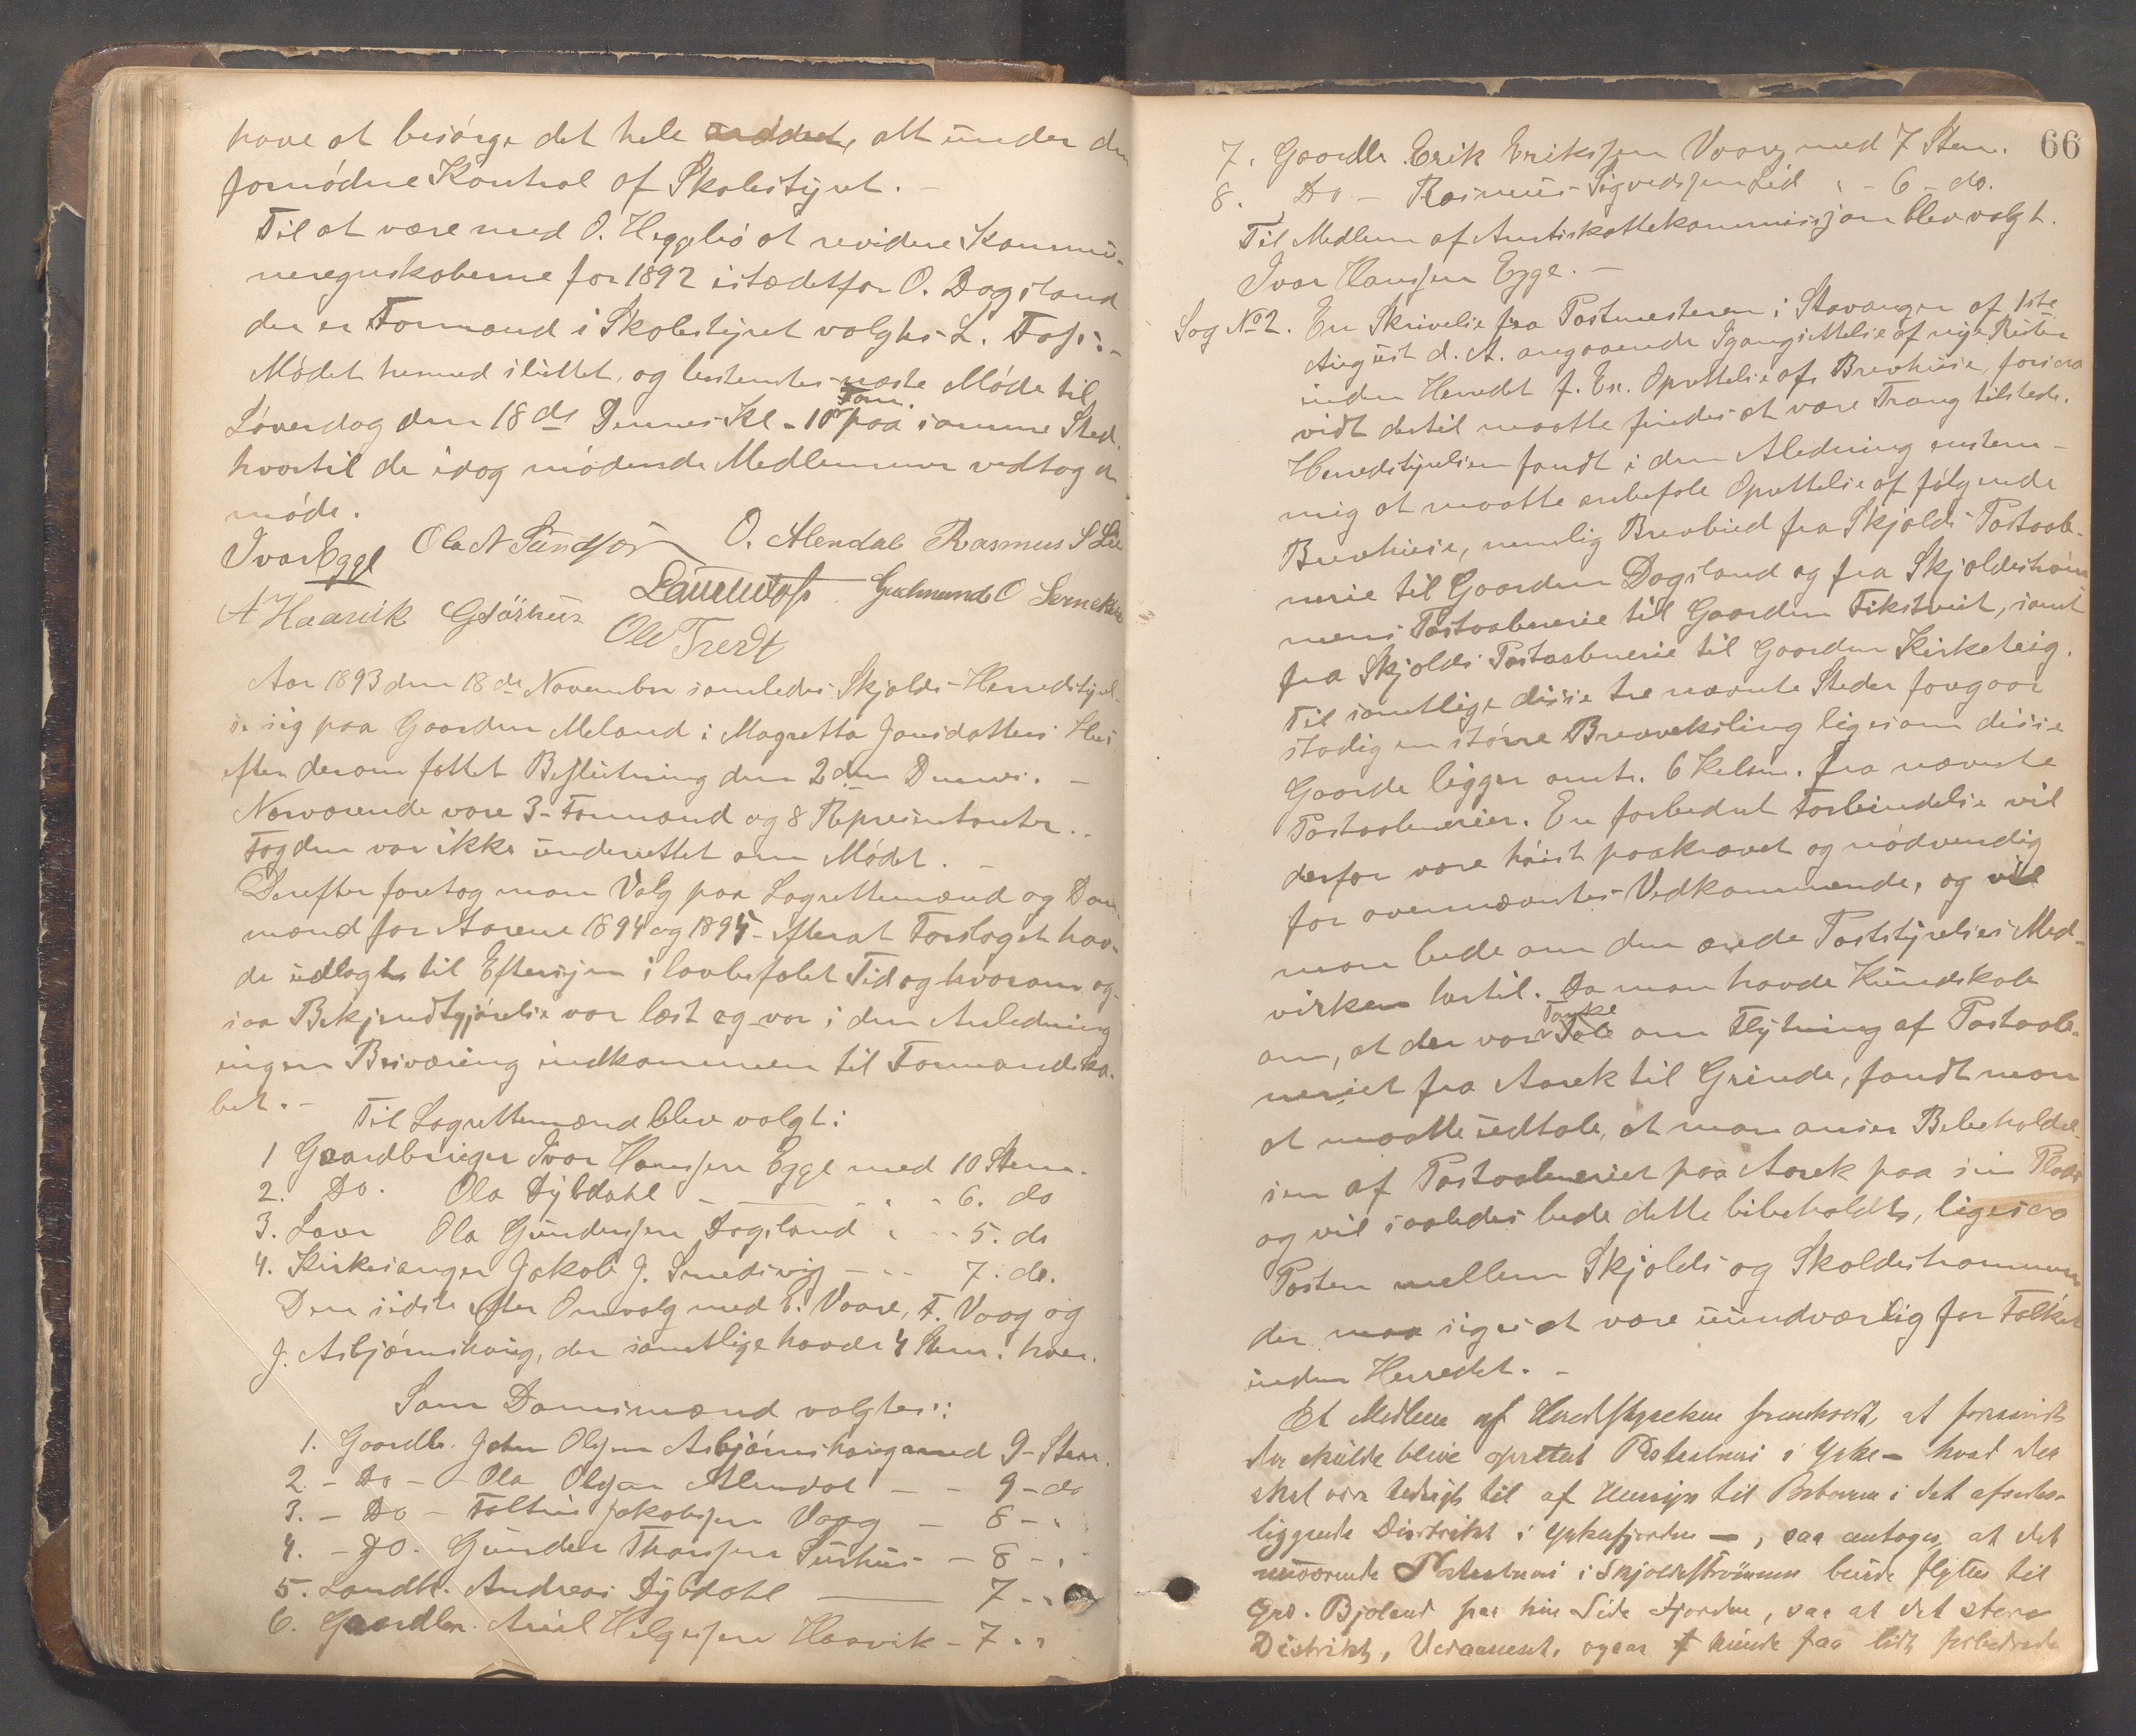 have at besørge det hele arbdet, alt under den
fornødne Kontrol af Skolestyret. -
Til at være med O. Heggebø at revidere Kommu-
neregnskaberne for 1892 istædetfor O. Dagsland
der er Formand i Skolestyret valgtes L. Tofs: -
Mødet hermed sluttet, og bestemtes næste Møde til
Løverdag den 18 de Dennes Kl. 10 Form. paa samme Sted
hvortil de idag mødende Medlemmer vedtog at
møde.
Ivar Egge Ola N Sundfør O. Alendal Rasmus S Lie
A Haavik G Sørhus Laur. Tofs Gudmund O
Ole Tredt
Aar 1893 den 18 de November samledes Skjolds Herredstyrel-
se sig paa Gaarden Meland i Magretta Jansdatters Hus
efter derom fattet Beslutning den 2 den Dennes. -
Nærværende vare 3 Formænd og 8 Represintanter. -
Fogden var ikke underrettet om Mødet. -
Derefter foretog man Valg paa Lagrettemænd og Dom-
mænd for Aarene 1894 og 1895 efterat Forslaget hav-
de udlagts til Eftersyn i lovbefalet Tid og hvorom og-
saa Bekjendtgjørelse var læst og var i den Anledning
ingen Besværing indkommen til Formandska-
bet. -
Til Lagrettemænd bleve valgt:
1 Gaardbruger Ivar Hansen Egge med 10 Stem.
2. Do. Ola Dybdahl - " - 6. do
3. Lavr Ola Gundersen Dagsland " - 5. do
4. Kirkesanger Jakob J. Smedsvig - - - 7. do.
Den sidste efter Omvalg med E. Vaare, F. Vaag og
J. Asbjørnshaug, der samtlige havde 4 Stem. hver.
Som Domsmænd valgtes:
1. Gaardb. John Olsen Asbjørnshaug med 9 - Stem.
2. - Do - - Ola Olsen Alendal - - 9 - do
3. - Do - Faltin Jakobsen Vaag - 8 - "
4. - Do. Gunder Thorsen Surhus - 8 - "
5. Landh. Andreas Dybdahl - 7 - "
6. Gaardbr. Helgesen Haavik - 7 - "
66
7. Gaardbr. Erik Eriksen Vaag med 7 Stem.
8. Do - Rasmus Sigvedsen Lid " - 6 - do.
Til Medlem af Amtsskattekommissjon blev valgt.
Ivar Hansen Egge. -
Sag No 2. En Skrivelse fra Postmesteren i Stavanger af 1ste
August d. A. angaaende Igangsættelse af nye Ruter
inden Herredet f. Ex. Oprettelse af Brevhuse, forsaa
vidt dertil maatte findes at være Trang tilstede.
Herredstyrelsen fandt i den Aledning enstem-
mig at maatte anbefale Oprettelse af følgende
Brevhuse, nemlig Brevbud fra Skjolds Postaab-
nerie til Gaarden Dagsland og fra Skjoldestraum-
mens Postaabnerie til Gaarden Fikstveit, samt
fra Skjolds Postaabnerie til Gaarden Kirketeig.
Til samtlige disse tre nævnte Steder foregaar
stadig en større Brevveksling ligesom disse
Gaarde ligger omtr. 6 Kelom. fra nævnte
Postaabnerier. En forbedret Forbindelse vil
derfor være høist paakrævet og nødvendig
for ovennævntes Vedkommende, og vil
man bede om den ærede Poststyrelses Med-
virken hertil. Da man havde Kundskab
om, at der var Tanke Tale om Flytning af Postaab-
neriet fra Aarek til Grinde, fandt man
at maatte udtale, at man anser Bebeholdel-
sen af Postaabneriet paa Aarek paa sin Plads
og vil saaledes bede dette bibeholdt, ligesaa
Posten mellem Skjolds og Skoldestrommen
der maa siges at være uundværlig for Folket
inden Herredet. -
Et Medlem af Herredstyrelsen fremholdt, at forsaavidt
der skulde blive oprettet Postaabneri i Yrke - hvad der
skal være ledigt til af Hensyn til Beboerne i det afsides-
liggende Distrikt i Yrkefjorden -, saa antoges at det
nuværende Postaabneri i Skjoldestrømmen burde flyttes til
Grd. Bjoland paa hin Side Fjorden, saa at det store
Distrikt, ogsaa kunde faa lidt forbedrede